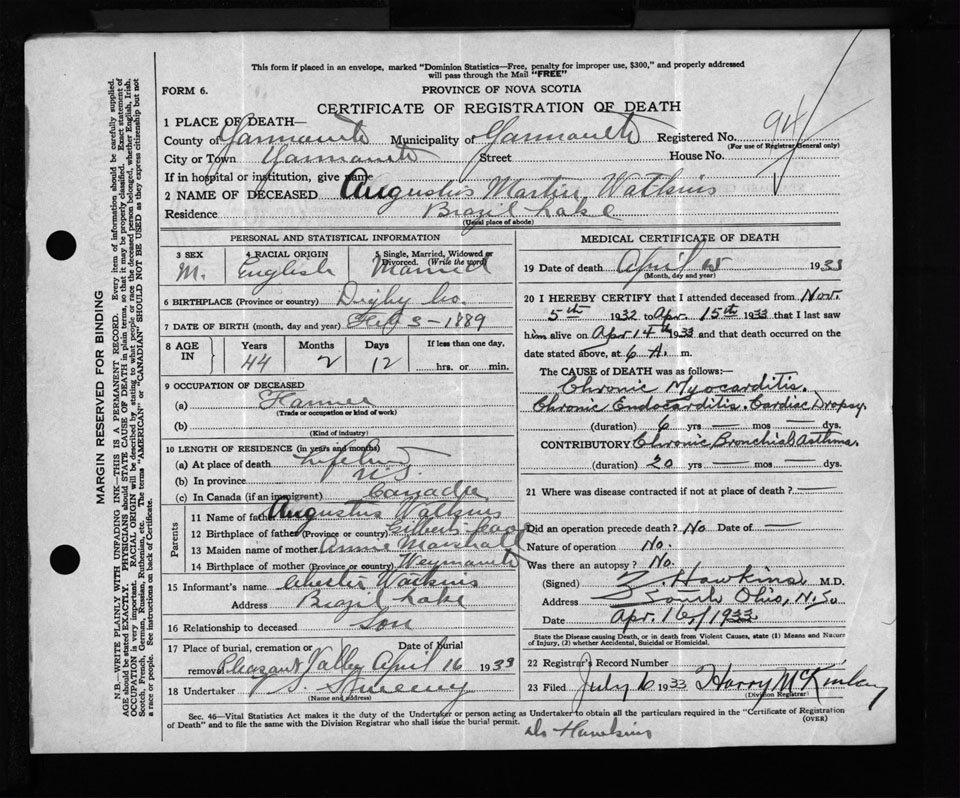 This form if placed in an envelope, marked "Dominion Statistics—Free, penalty for improper use, $300," and properly addressed
will pass through the Mail "FREE"
FORM 6.
PROVINCE OF NOVA SCOTIA
CERTIFICATE OF REGISTRATION OF DEATH
1 PLACE OF DEATH—
County of Yarmouth Municipality of Yarmouth Registered No. 94
(For use of Registrar General only)
City or Town Yarmouth Street House No.
If in hospital or institution, give name
2 NAME OF DECEASED Augustus Martin Watkins
Residence Brazil Lake
(Usual place of abode)
PERSONAL AND STATISTICAL INFORMATION
3 SEX 4 RACIAL ORIGIN 5 Single, Married, Widowed or Divorced. (Write the word)
M. English Married
6 BIRTHPLACE (Province or country) Digby Co.
7 DATE OF BIRTH (month, day and year) Feb 3-1889
8 AGE IN Years Months Days If less than one day,
44 2 12 hrs. or min.
9 OCCUPATION OF DECEASED
(a) Farmer
(Trade or occupation or kind of work)
(b)
(Kind of industry)
10 LENGTH OF RESIDENCE (in years and months)
(a) At place of death
(b) In province N.S.
(c) In Canada (if an immigrant) Canada
Parents
11 Name of father Augustus Watkins
12 Birthplace of father (Province or country)
13 Maiden name of mother Annie Marshall
14 Birthplace of mother (Province or country) Weymouth
15 Informant's name Chester Watkins
Address Brazil Lake
16 Relationship to deceased Son
17 Place of burial, cremation or removal Date of Burial
Pleasant Valley April 16 1933
18 Undertaker Sweeny
(Name and address)
MEDICAL CERTIFICATE OF DEATH
19 Date of death April 15 1933
(Month, day and year)
20 I HEREBY CERTIFY that I attended deceased from Nov.
5th 1932 to Apr. 15th 1933 that I last saw
him alive on Apr 14th 1933 and that death occurred on the
date stated above, at 6 A. m.
The CAUSE of DEATH was as follows:—
Chronic Myocarditis.
Chronic Endocarditis. Cardiac Dropsy.
(duration) 6 yrs — mos — dys.
CONTRIBUTORY Chronic Bronchial Asthma.
(duration) 20 yrs — mos — dys.
21 Where was disease contracted if not at place of death? —
Did an operation precede death? No Date of —
Nature of operation No.
Was there an autopsy? No.
(Signed) Z. Hawkins M.D.
Address South Ohio, N.S.
Date Apr. 16/1933
State the Disease causing Death, or in death from Violent Causes, state (1) Means and Nature
of Injury, (2) whether Accidental, Suicidal or Homicidal.
22 Registrar's Record Number
23 Filed July 6 1933 Harry McKinlay
(Division Registrar)
Sec. 46—Vital Statistics Act makes it the duty of the Undertaker or person acting as Undertaker to obtain all the particulars required in the "Certificate of Registration
of Death" and to file the same with the Division Registrar who shall issue the burial permit.
(OVER)
Dr Hawkins
MARGIN RESERVED FOR BINDING
N.B.—WRITE PLAINLY WITH UNFADING INK—THIS IS A PERMANENT RECORD. Every item of information should be carefully supplied.
AGE should be stated EXACTLY. PHYSICIANS should STATE CAUSE OF DEATH in plain terms, so that it may be properly classified. Exact statement of
OCCUPATION is very important. RACIAL ORIGIN will be described by stating to what people or race the deceased person belonged, whether English, Irish,
Scotch, French, German, Russian, Ruthenian, etc. The terms "AMERICAN" or "CANADIAN" SHOULD NOT BE USED as they express citizenship but not
a race or people. See instructions on back of Certificate.